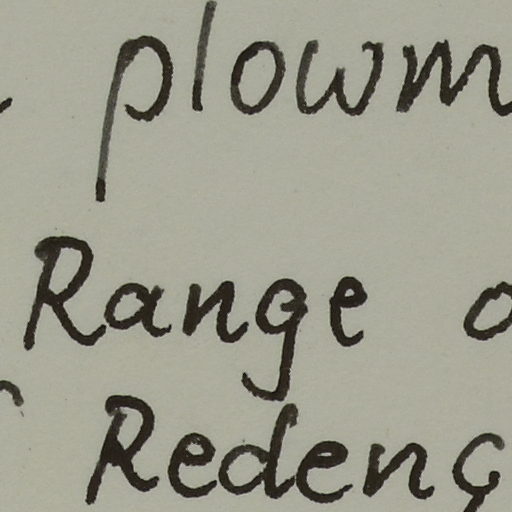 plowm
Range o
Redenç